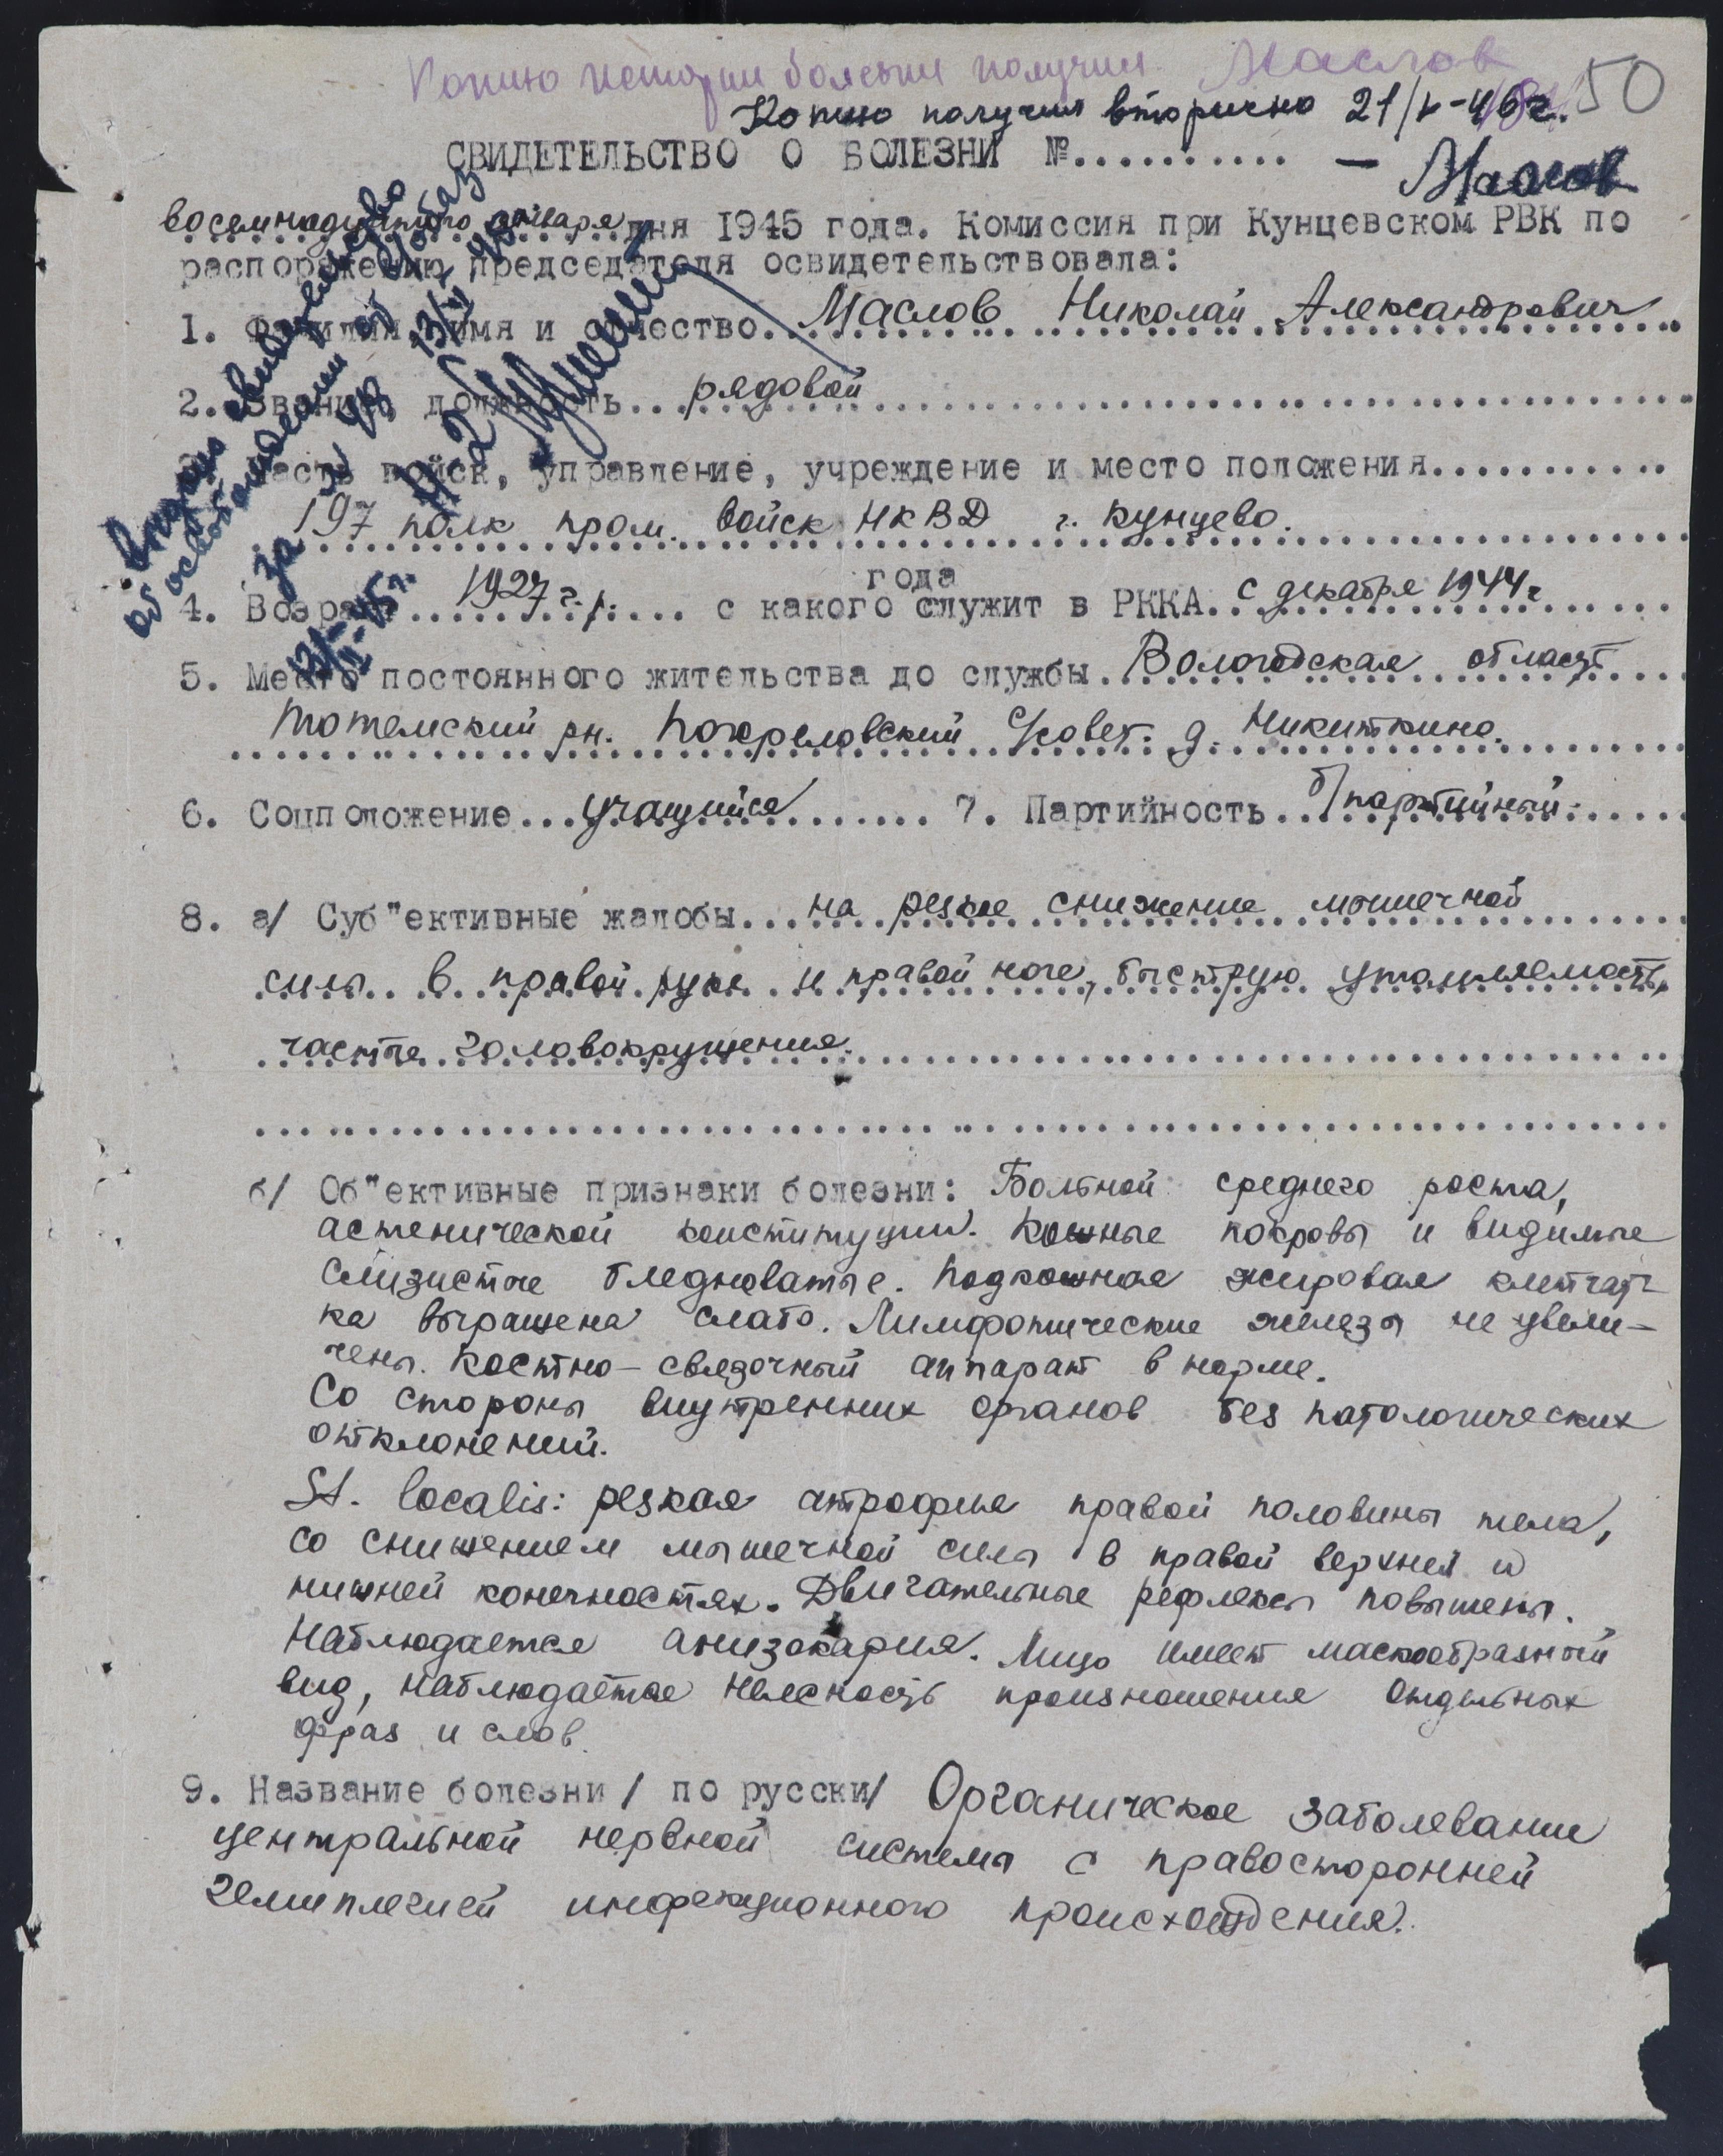 Копию истории болезни получил Маслов
50
Копию получил вторично 21/V-46г.
СВИДЕТЕЛЬСТВО О БОЛЕЗНИ №.......... — Маслов
восемнадцатого января дня 1945 года. Комиссия при Кунцевском РВК по
распоряжению председателя освидетельствовала:
1. Фамилия имя и отчество.. Маслов Николай Александрович
2. Звание, должность... рядовой
3. Часть войск, управление, учреждение и место положения...........
197 полк пром. войск НКВД г. Кунцево.
года
4. Возраст.. 1927 г.р. ... с какого служит в РККА.. с декабря 1944г
5. Место постоянного жительства до службы. Вологодская область
Тотемский рн. Погореловский С/совет. д. Никиткино.
6. Соцположение... учащийся ....... 7. Партийность.. б/партийный.
8. а/ Суб"ективные жалобы... на резкое снижение мышечной
силы в правой руке и правой ноге, быструю утомляемость,
частые головокружения.
б/ Об"ективные признаки болезни: Больной среднего роста,
астенической конституции. Кожные покровы и видимые
слизистые бледноватые. Подкожная жировая клетчат-
ка выражена слабо. Лимфотические железы не увели-
чены. Костно-связочный аппарат в норме.
Со стороны внутренних органов без патологических
отклонений.
St. localis: резкая атрофия правой половины тела,
со снижением мышечной силы в правой верхней и
нижней конечностях. Двигательные рефлексы повышены.
Наблюдается анизокария. Лицо имеет маскообразный
вид, наблюдается неясность произношения отдельных
фраз и слов.
9. Название болезни / по русски/ Органическое заболевание
центральной нервной системы с правосторонней
гемиплегией инфекционного происхождения.
Выдано свидетельство
об освобождении
за №
13/II-45г.